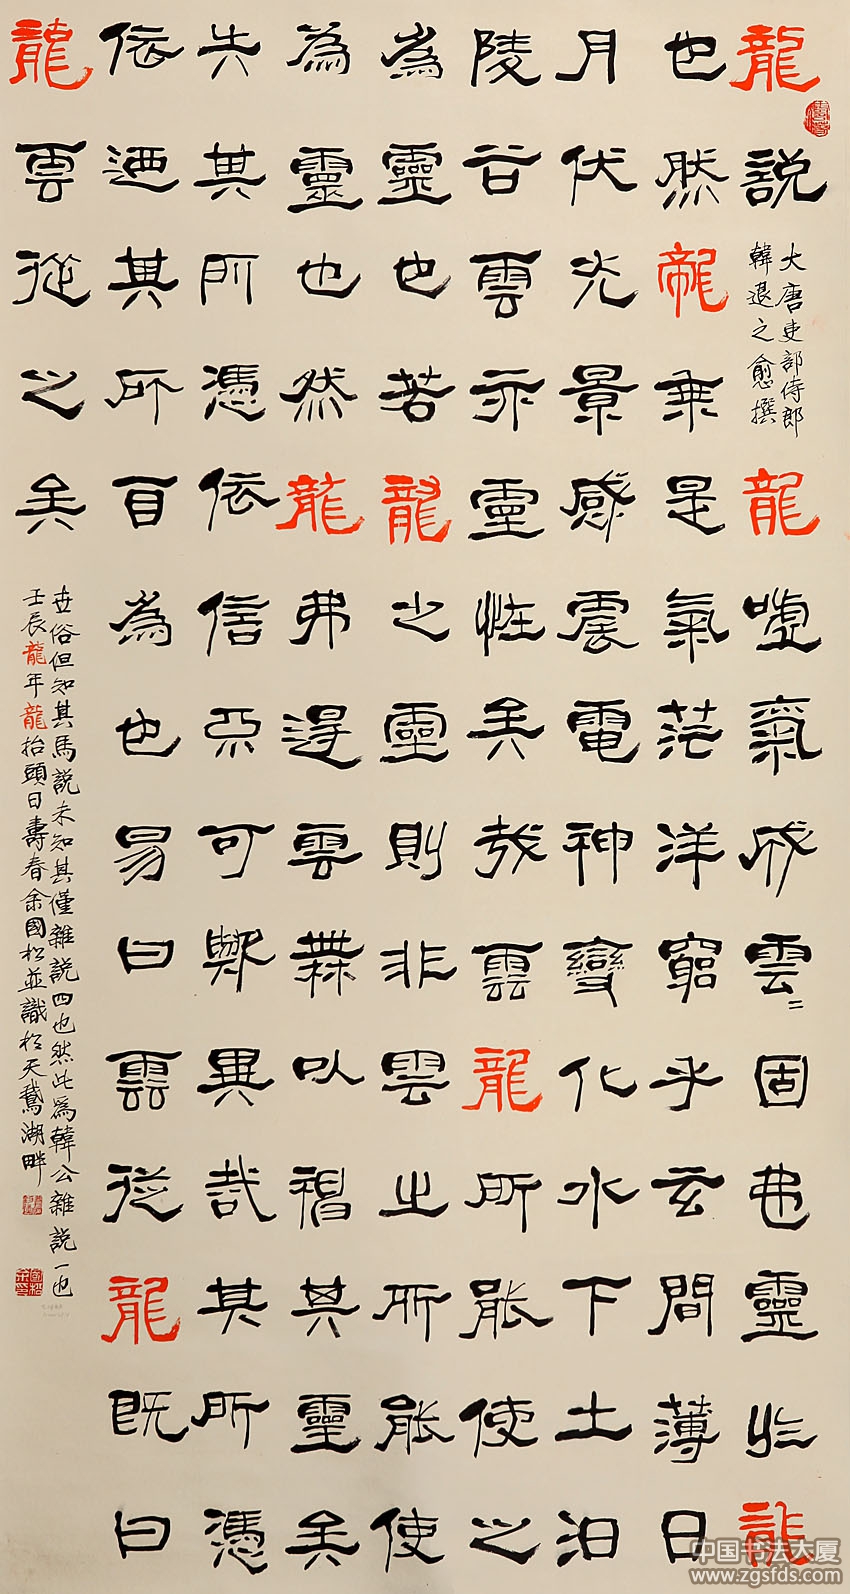 龍說
大唐吏部侍郎
韓退之愈撰
龍噓氣成雲〻固弗靈於龍
也然龍乘是氣茫洋窮乎玄間薄日
月伏光景感震電神變化水下土汩
陵谷雲亦靈怪矣哉雲龍所能使之
為靈也若龍之靈則非雲之所能使
為靈也然龍弗得雲無以神其靈矣
失其所憑依信不可歟異哉其所憑
依迺其所自為也易曰雲從龍既曰
龍雲從之矣
世俗但知其馬說未知其僅雜說四也然此為韓公雜說一也
壬辰龍年龍抬頭日壽春余國松並識於天鵝湖畔
中国书法大厦
www.zgsfds.com